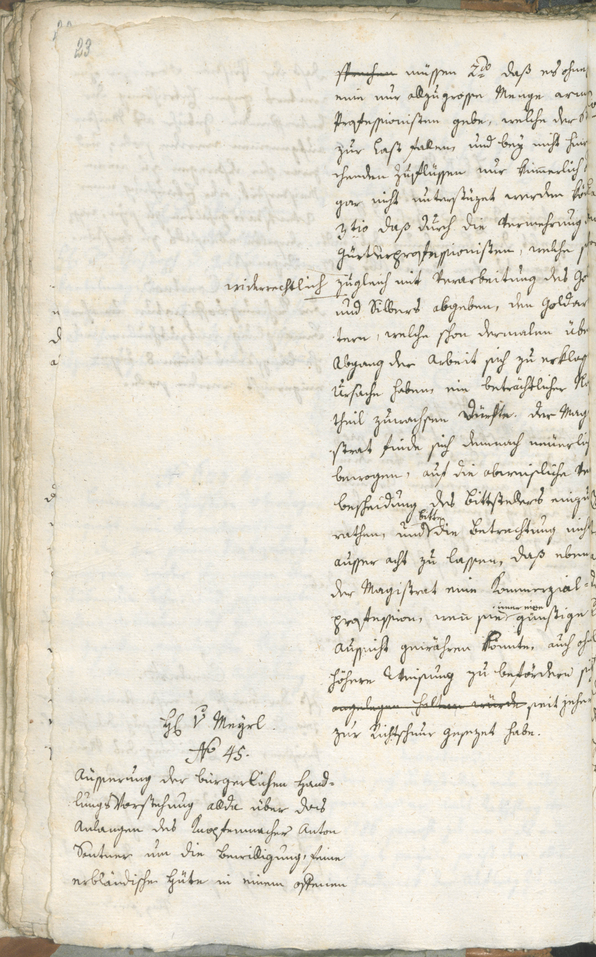 23
sprechen müssen 2do daß es ohne
eine nur allzugrosse Menge arme
Professionisten gebe, welche der
zur Last fallen, und bey nicht hin
chenden Zuflüssen nur kümmerlich
gar nicht unterstüzet werden kön
3tio daß durch die Vermehrung
Gürtlerprofessionisten, welche
widerrechtlich
zugleich mit Verarbeitung des Go
und Silbers abgeben, den Goldar
tern, welche schon dermalen übe
Abgang der Arbeit sich zu erklag
Ursache haben, ein beträchtlicher Na
theil zuwachsen dürfte. Der Mag
strat finde sich demnach neuerlich
bewogen, auf die abweisliche Ve
bescheidung des Bittstellers einzu
rathen, und bitte die Betrachtung nicht
ausser acht zu lassen, daß eben
der Magistrat eine Kommerzial
profession, wenn sie immer eine günstige
Aussicht gewähren könnte, auch oh
höhere Weisung zu befördern si
angelegen halten würde seit jeher
zur Richtschnur gesezet habe.
H v Mayrl.
No 45.
Äusserung der bürgerlichen Hand-
lungs Vorstehung alda über das
Anlangen des Knopfenmacher Anton
Sentner um die Bewilligung, seine
erbländische Hüte in einem offenen